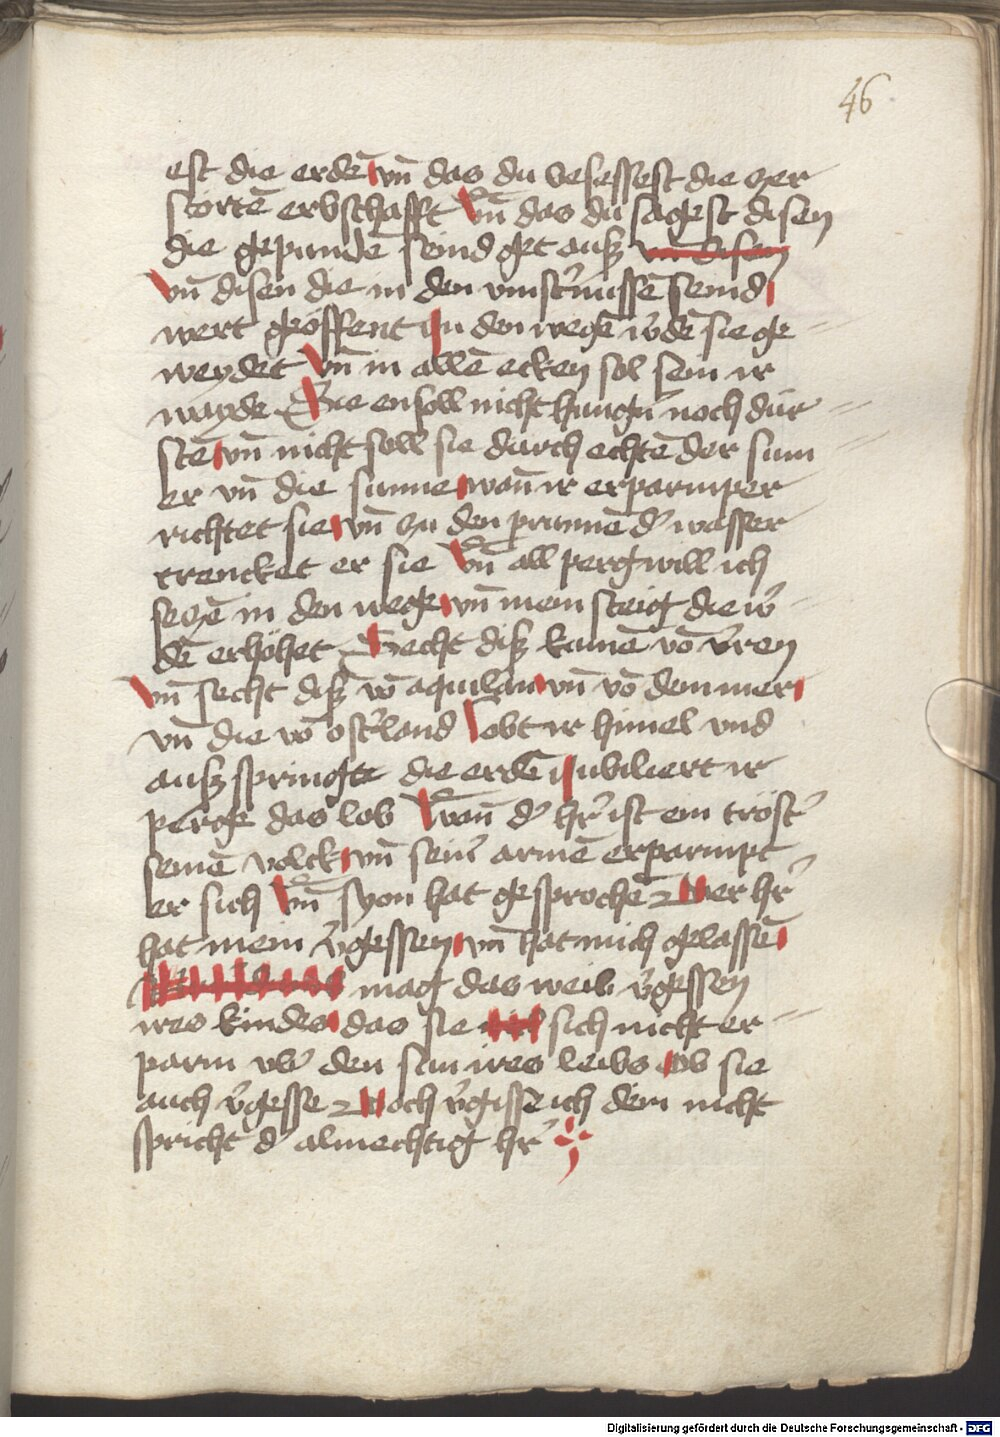 46
est die erdē vn̄ das du besessest die zer
störtē erbschafft Vn̄ das du sagest disen
die gepundē seind get auß vn̄ disen
vn̄ disen die in den vinst'nussē seind
wert geöffent In den wegē w'dē sie ge
weydet Vn̄ in allē ecken sol sein ir
wayde Sie ensoll nicht hung'n noch dür
stē vn̄ nicht soll sie durch echtē der sum
er vn̄ die sunne wan̄ ir erparmper
richtet sie vn̄ zu den prunnē d' wasser
trencket er sie Vn̄ all perg will ich
seczē in den wege vn̄ mein steig die w'
dē erhöhet Secht diß kumē vō v'ren
Vn̄ secht diß vō aquilan vn̄ vō dem mer
vn̄ die vō ost'land Lobt ir himel vnd
auß springte die erdē Jubiliert ir
perge das lob Wan̄ d' hr' ist ein tröst'
seinē volck vn̄ sein' armē erparmpt
er sich Vn̄ syon hat gesprochē Der hr'
hat mein v'gessen vn̄ hat mich gelassē
mag das weib v'gessen
ires kindes das sie sich nicht er
parm vb' den sun ires leibs Ob sie
auch v'gesse Noch v'gisse ich dein nicht
spricht d' almechtig hr'
Digitalisierung gefördert durch die Deutsche Forschungsgemeinschaft - DFG